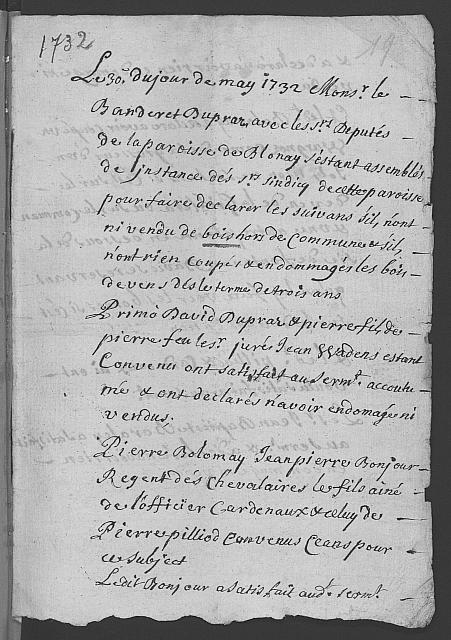 1732
19
Le 30.e du jour de may 1732 Mons.r le
Banderet Dupraz, avec les S.rs Deputés
de la paroisse de Blonay s'estant assemblés
de l'instance dés s.rs sindicq de cette paroisse
pour faire declarer les suivans s'il, n'ont
ni vendu de bois hors de Commune & s'il,
n'ont rien Coupés & endommagés les bois
de vens dés le terme de trois ans
Primò David Dupraz & pierre fils de
pierre feu le s.r juré Jean Wadens estant
Convenu ont satisfait au serm.t accoutu-
mé & ont declarés n'avoir endomagé ni
vendus.
Pierre Bolomay Jean pierre Bonjour
Regent dés Chevalaires le fils ainé
de l'officier Cardenaux & celuy de
Pierre pilliod Convenus Ceans pour
ce subject
Ledit Bonjour a satisfait aud.t serm.t